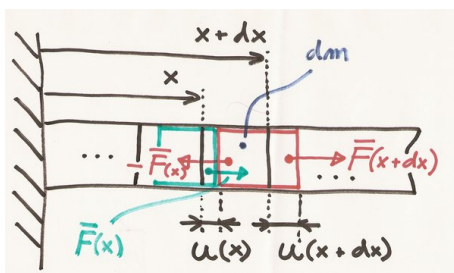 x + dx
x
dm
... -F̅(x) F̅(x+dx)
...
F̅(x)
u(x) u(x+dx)